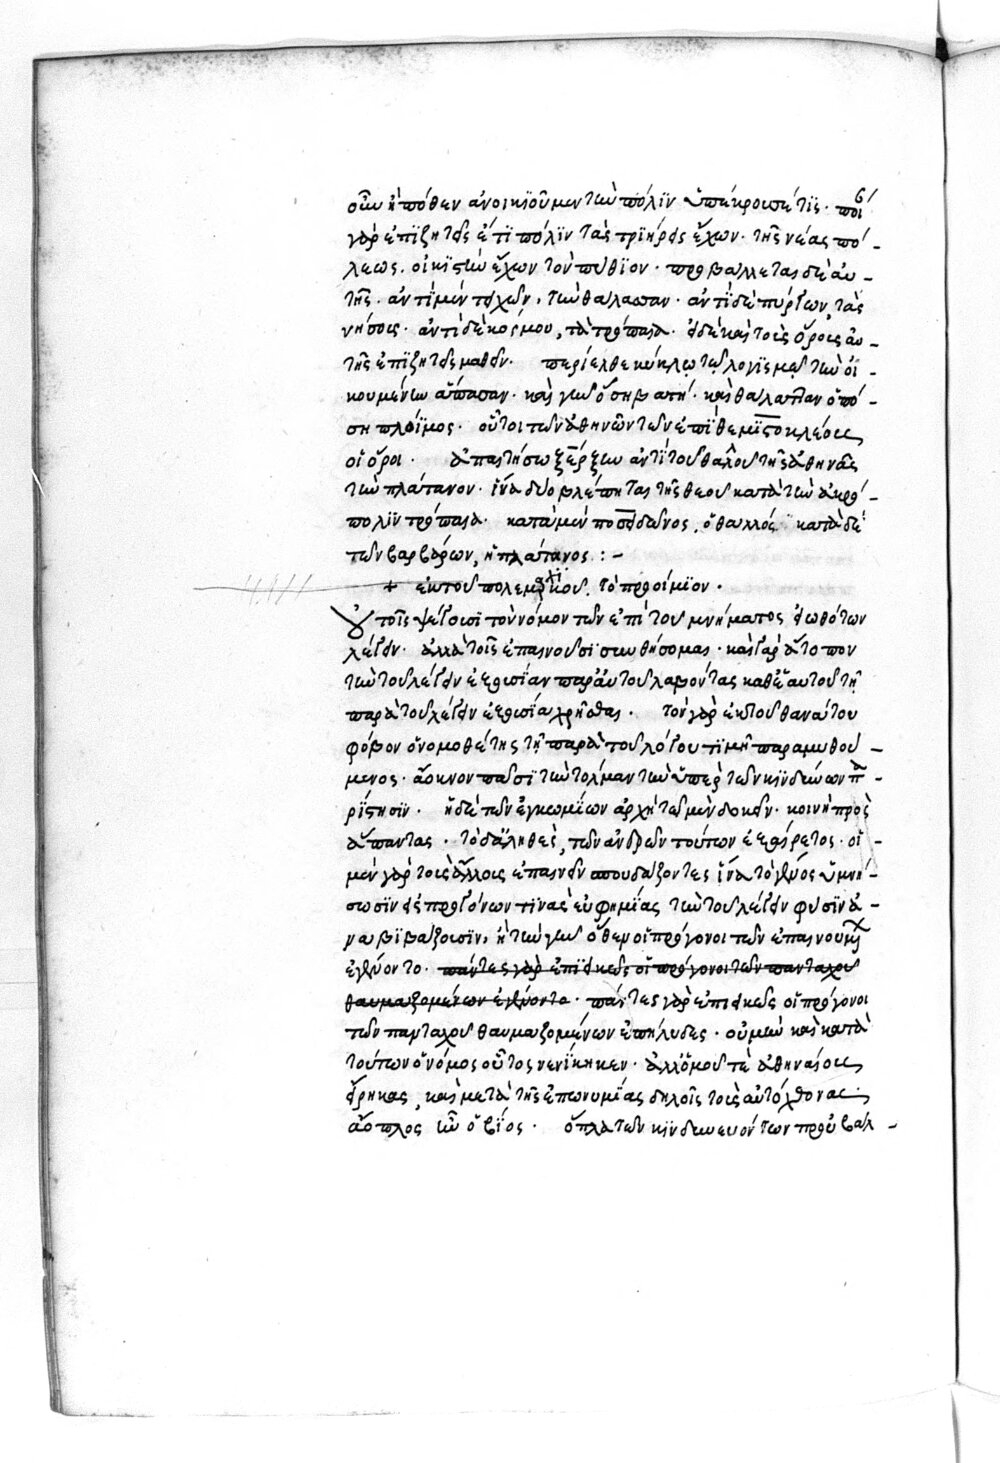 οὖν ἢ πόθεν ἀνοικιοῦμεν τὴν πόλϊν ὑπέκρουσέ τϊς· ποῖ
γὰρ ἐπϊζητεῖς ἔτϊ πόλϊν τὰς τρϊήρεις ἔχων· τῆς νέας πό-
λεως. οἰκϊστὴν ἔχων τὸν πύθϊον· προβαλλεται δὲ αὐ-
τῆς· ἀντὶ μὲν τειχῶν, τὴν θάλασσαν· ἀντϊ δὲ πύργων, τὰς
νήσους· ἀντὶ δὲ κόσμου, τὰ τρόπαια· εἰ δὲ καὶ τοὺς ὅρους αὐ-
τῆς ἐπϊζητεῖς μαθεῖν· περίελθε κύκλῳ τῷ λογϊσμῷ τὴν οἰ-
κουμένην ἅπασαν· καὶ γῆν ὅση βατή· καὶ θάλατταν ὁπό-
ση πλόϊμος· οὗτοι τῶν ἀθηνῶν τῶν ἐπὶ θεμϊστοκλέους
οἱ ὅροι· ἀπαιτήσω ξέρξην ἀντὶ τοῦ θαλλοῦ τῆς ἀθηνᾶς
τὴν πλάτανον· ἵνα δύο βλέπηται τῆς θεοῦ κατὰ τὴν ἀκρό-
πολϊν τρόπαια· κατὰ μὲν ποσειδῶνος, ὁ θαλλός· κατὰ δὲ
τῶν βαρβάρων, ἡ πλάτανος :-
+ ἐκ τοῦ πολεμαρχικοῦ. τὸ προοίμϊον·
Οὐ τοῖς ψέγουσϊ τὸν νόμον τῶν ἐπὶ τοῦ μνήματος εἰωθότων
λέγειν· ἀλλὰ τοῖς ἐπαινοῦσϊ συνθήσομαι· καὶ γὰρ ἄτοπον
τὴν τοῦ λέγειν ἐξουσίαν παρ' αὐτοῦ λαβόντας καθ' ἑαυτοῦ τῇ
παρὰ τοῦ λέγειν ἐξουσίᾳ χρῆσθαι· τὸν γὰρ ἐκ τοῦ θανάτου
φόβον ὁ νομοθέτης τῇ παρὰ τοῦ λόγου τϊμῇ παραμυθού-
μενος· ἄοκνον πᾶσϊ τὴν τόλμαν τὴν ὑπὲρ τῶν κϊνδύνων πα-
ρίστησϊν· ἡ δὲ τῶν ἐγκωμίων ἀρχὴ τῷ μὲν δοκεῖν· κοινὴ πρὸς
ἅπαντας· τὸ δ' ἀληθὲς, τῶν ἀνδρῶν τούτων ἐξαίρετος· οἱ
μὲν γὰρ τοὺς ἄλλους ἐπαινεῖν σπουδάζοντες ἵνα τὸ γένος ὑμνή-
σωσϊν εἰς προγόνων τϊνὰς εὐφημίας τὴν τοῦ λέγειν φύσϊν ἀ-
ναβϊβάζουσϊν, ἢ τὴν γῆν ὅθεν οἱ πρόγονοι τῶν ἐπαινουμένων
ἐγένοντο· πάντες γὰρ ἐπϊεικῶς οἱ πρόγονοι τῶν πανταχοῦ
θαυμαζομένων ἐγένοντο· πάντες γὰρ ἐπιεικῶς οἱ πρόγονοι
τῶν πανταχοῦ θαυμαζομένων ἐπήλυδες· οὐ μὴν καὶ κατὰ
τούτων ὁ νόμος οὗτος νενίκηκεν· ἀλλ' ὁμοῦ τὲ ἀθηναίους
εἴρηκας, καὶ μετὰ τῆς ἐπωνυμίας δηλοῖς τοὺς αὐτόχθονας·
ἄοπλος ἦν ὁ βϊος· ὅπλα τῶν κϊνδυνευόντων προὐβαλ-